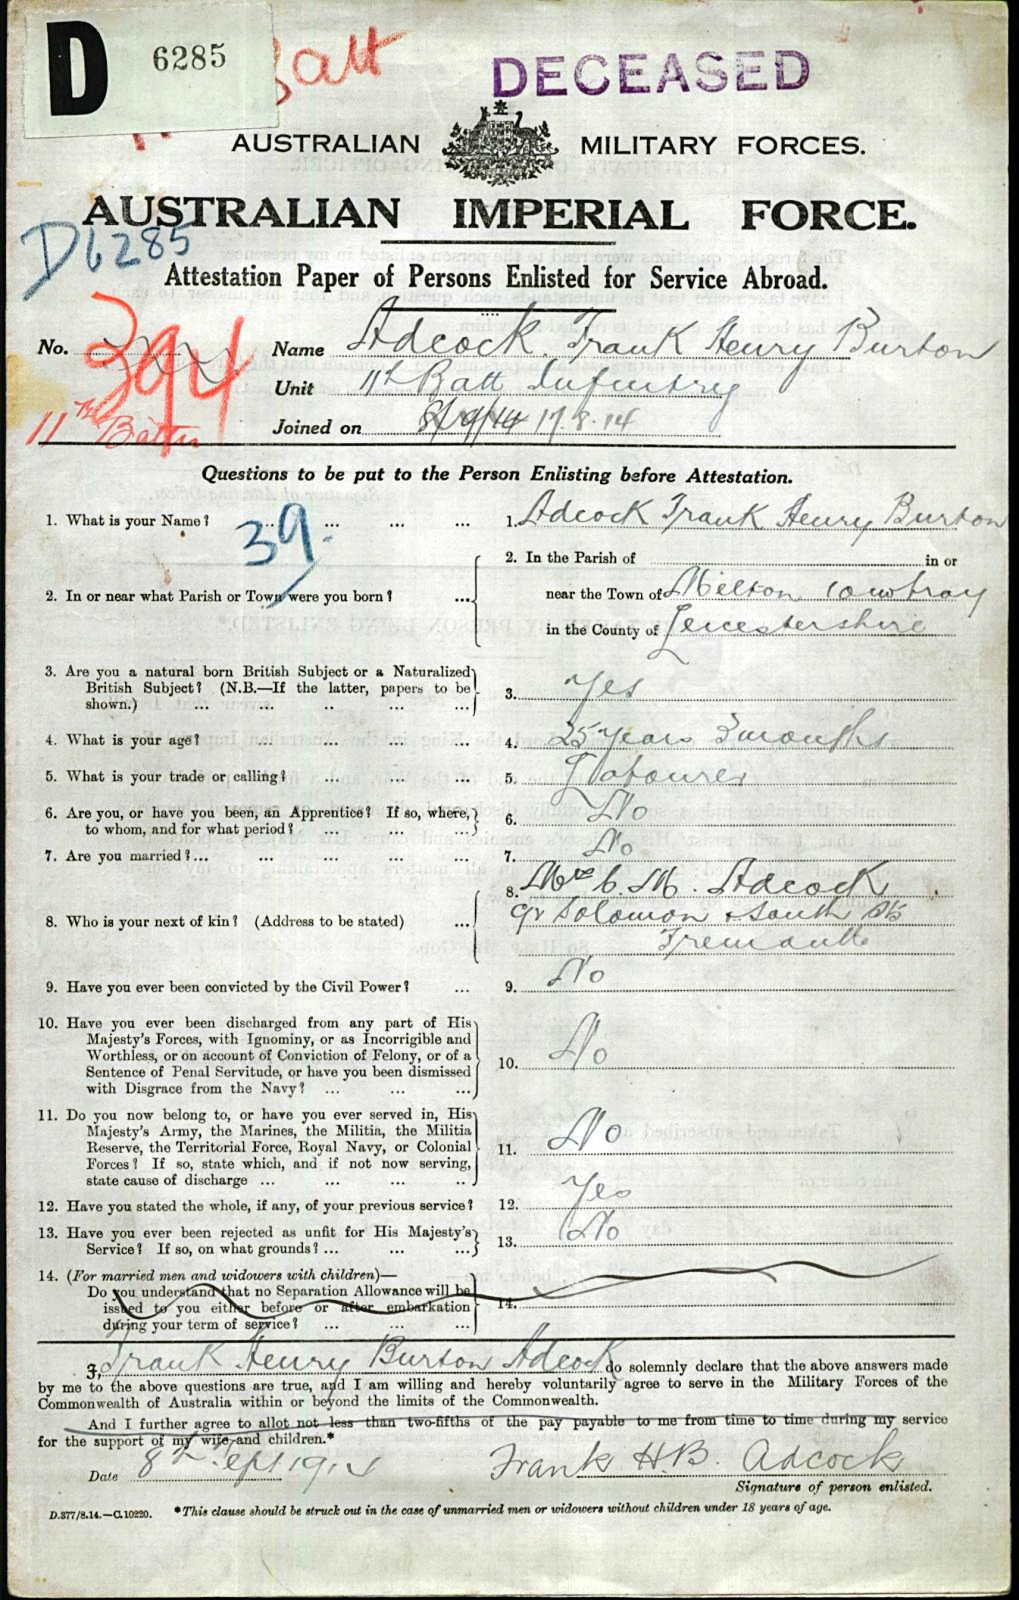 D 6285
Batt
DECEASED
AUSTRALIAN MILITARY FORCES.
AUSTRALIAN IMPERIAL FORCE.
D6285
Attestation Paper of Persons Enlisted for Service Abroad.
No. 394
Name Adcock. Frank Henry Burton
Unit 11th Batt Infantry
11th Battn
Joined on 8/9/14 17.8.14
Questions to be put to the Person Enlisting before Attestation.
1. What is your Name? ... ... ... 1. Adcock Frank Henry Burton
39.
2. In or near what Parish or Town were you born? ... 2. In the Parish of in or
near the Town of Milton Mowbray
in the County of Leicestershire
3. Are you a natural born British Subject or a Naturalized
British Subject? (N.B.—If the latter, papers to be
shown.) ... ... .. ... ... 3. Yes
4. What is your age? ... ... ... ... 4. 25 years 3 months
5. What is your trade or calling? ... ... ... 5. Labourer
6. Are you, or have you been, an Apprentice? If so, where,
to whom, and for what period? ... ... ... 6. No
7. Are you married?... ... ... ... ... 7. No
8. Who is your next of kin? (Address to be stated) ... 8. Mrs C. M. Adcock
Cr Solomon & South Sts
Fremantle
9. Have you ever been convicted by the Civil Power? ... 9. No
10. Have you ever been discharged from any part of His
Majesty's Forces, with Ignominy, or as Incorrigible and
Worthless, or on account of Conviction of Felony, or of a
Sentence of Penal Servitude, or have you been dismissed
with Disgrace from the Navy? ... ... ... 10. No
11. Do you now belong to, or have you ever served in, His
Majesty's Army, the Marines, the Militia, the Militia
Reserve, the Territorial Force, Royal Navy, or Colonial
Forces? If so, state which, and if not now serving,
state cause of discharge ... ... .. .. 11. No
12. Have you stated the whole, if any, of your previous service? 12. Yes
13. Have you ever been rejected as unfit for His Majesty's
Service? If so, on what grounds? ... ... ... 13. No
14. (For married men and widowers with children)—
Do you understand that no Separation Allowance will be
issued to you either before or after embarkation
during your term of service? ... ... ... 14.
I, Frank Henry Burton Adcock do solemnly declare that the above answers made
by me to the above questions are true, and I am willing and hereby voluntarily agree to serve in the Military Forces of the
Commonwealth of Australia within or beyond the limits of the Commonwealth.
And I further agree to allot not less than two-fifths of the pay payable to me from time to time during my service
for the support of my wife and children.*
Date 8th Sept 1914 Frank H.B. Adcock
Signature of person enlisted.
D.377/8.14.—C.10220. *This clause should be struck out in the case of unmarried men or widowers without children under 18 years of age.